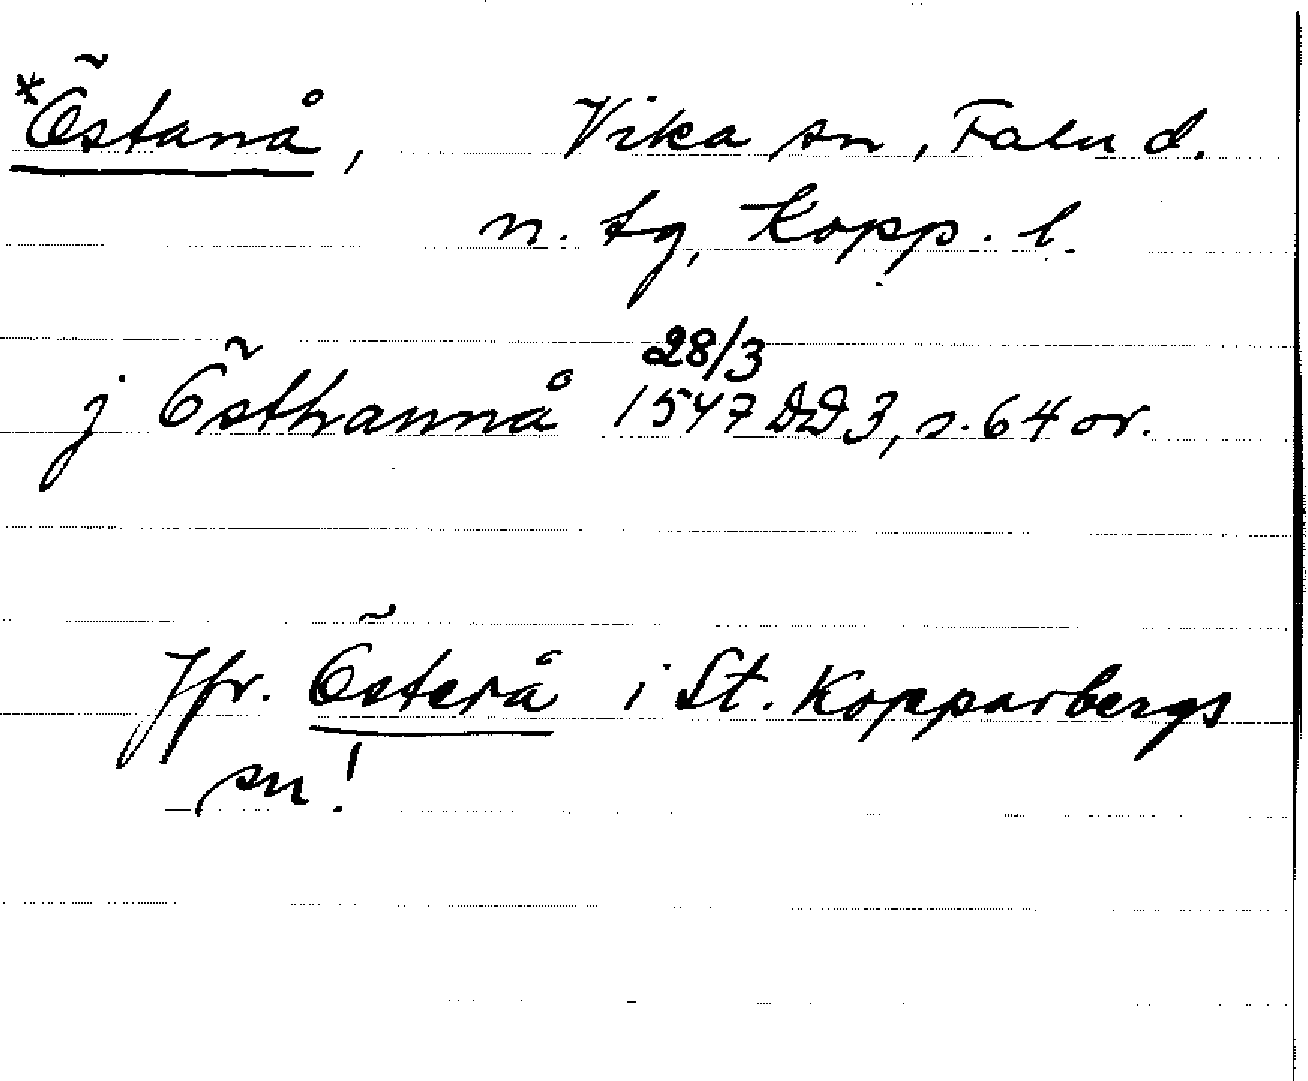 *Östanå, Vika sn, Falu d.
n. tg, Kopp. l.
28/3
j Östhannå 1547 DD 3, s. 64 or.
Jfr. Österå i St. Kopparbergs
sn!